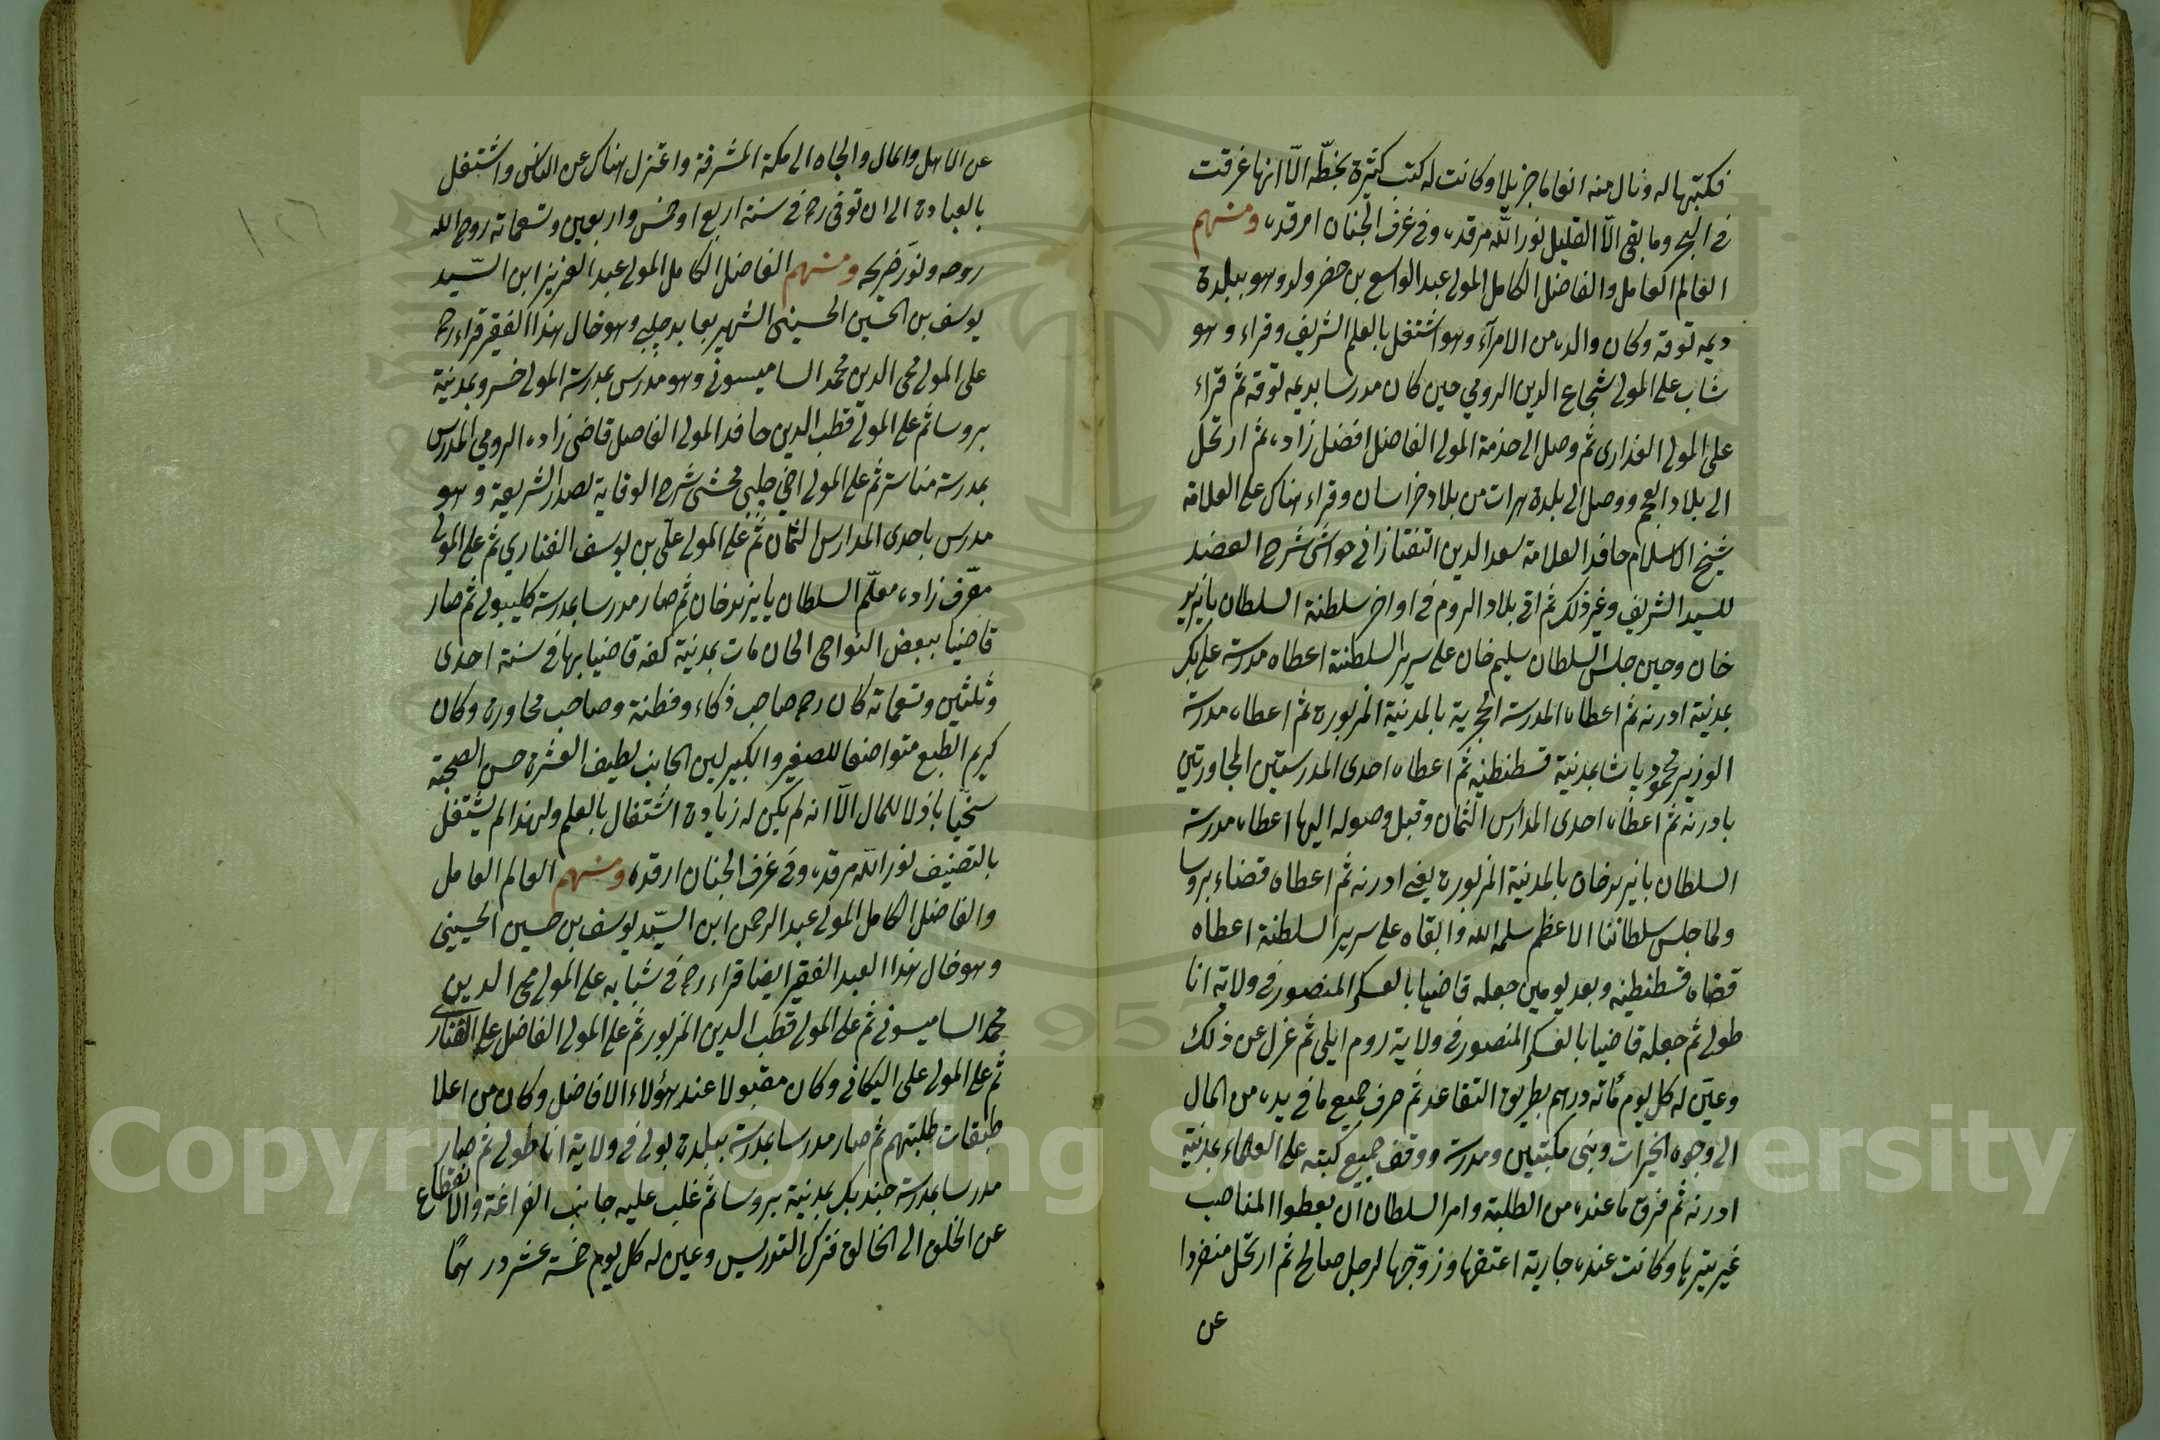 فكتبها له ونال منه انعاما جزيلا وكانت له كتب كثيرة بخطه الّا انها غرقت
في البحر وما بقي الّا القليل نور الله مرقده وفي غرف الجنان ارقده ومنهم
العالم العامل والفاضل الكامل المولى عبد الواسع بن خضر ولد وهو ببلدة
ديمه توقه وكان والده من الامرآء وهو اشتغل بالعلم الشريف وقراء وهو
شاب على المولى شجاع الدين الرومي حين كان مدرسا بديمه توقه ثم قراء
على المولى العذارى ثم وصل الى خدمة المولى الفاضل افضل زاده ثم ارتحل
الى بلاد العجم ووصل الى بلدة هرات من بلاد خراسان وقراء هناك على العلامة
شيخ الاسلام حافد العلامة سعد الدين التفتازاني حواشي شرح العضد
للسيد الشريف وغير ذلك ثم اتى بلاد الروم في اواخر سلطنة السلطان بايزيد
خان وحين جلس السلطان سليم خان على سرير السلطنة اعطاه مدرسة علي بك
بمدينة ادرنه ثم اعطاه المدرسة الحجرية بالمدينة المزبورة ثم اعطاه مدرسة
الوزير محمود پاشا بمدينة قسطنطنيه ثم اعطاه احدى المدرستين المجاورتين
بادرنه ثم اعطاه احدى المدارس الثمان وقبل وصوله اليها اعطاه مدرسة
السلطان بايزيد خان بالمدينة المزبورة يعني ادرنه ثم اعطاه قضاء بروسا
ولما جلس سلطاننا الاعظم سلمه الله وابقاه على سرير السلطنة اعطاه
قضاء قسطنطنيه وبعد يومين جعله قاضيا بالعسكر المنصور في ولاية انا
طولي ثم جعله قاضيا بالعسكر المنصور في ولاية روم ايلي ثم عزل عن ذلك
وعيّن له كل يوم مائة درهم بطريق التقاعد ثم صرف جميع ما في يده من المال
الى وجوه الخيرات وبنى مكتبين ومدرسة ووقف جميع كتبه على العلماء بمدينة
ادرنه ثم فرق ما عنده من الطلبة وامر السلطان ان يعطوا المناصب
وكانت عنده جارية اعتقها وزوّجها لرجل صالح ثم ارتحل منفردا
عن
عن الاهل والمال والجاه الى مكة المشرفة واعتزل هناك عن الناس واشتغل
بالعبادة الى ان توفي رحـ في سنة اربع او خمس واربعين وتسعمائة روح الله
روحه ونوّر ضريحه ومنهم الفاضل الكامل المولى عبد العزيز ابن السّيد
يوسف بن الحسين الحسيني الشهير بعابد چلبي وهو خال هذا الفقير قراء رحـ
على المولى محي الدين محمد الساميسوني وهو مدرس بمدرسة المولى خسرو بمدينة
بروسا ثم على المولى قطب الدين حافد المولى الفاضل قاضي زاده الرومي المدرس
بمدرسة مناستر ثم على المولى اخي چلبي محشي شرح الوقاية لصدر الشريعة وهو
مدرس باحدى المدارس الثمان ثم على المولى علّي بن يوسف الفناري ثم على المولى
معرّف زاده معلّم السلطان بايزيد خان ثم صار مدرسا بمدرسة كليبولي ثم صار
قاضيا ببعض النواحي الى ان مات بمدينة كفه قاضيا بها في سنة احدى
وثلثين وتسعمائة كان رحـ صاحب ذكاء وفطنة وصاحب محاورة وكان
كريم الطبع متواضعا للصغير والكبير لين الجانب لطيف العشرة حسن الصحبة
سخيّا باذلا للمال الّا انه لم يكن له زيادة اشتغال بالعلم ولهذا لم يشتغل
بالتصنيف نور الله مرقده وفي غرف الجنان ارقده ومنهم العالم العامل
والفاضل الكامل المولى عبد الرحمن ابن السيّد يوسف بن حسين الحسيني
وهو خال هذا العبد الفقير ايضا قراء رحـ في شبابه على المولى محي الدين
محمد الساميسوني ثم على المولى قطب الدين المزبور ثم على المولى الفاضل علي الفناري
ثم على المولى علي اليكاني وكان مقبولا عند هؤلاء الافاضل وكان من اعلا
طبقات طلبتهم ثم صار مدرسا بمدرسة ببلدة بولي في ولاية اناطولي ثم صار
مدرسا بمدرسة جنديك بمدينة بروسا ثم غلب عليه جانب الفراغة والانقطاع
عن الخلق الى الخالق فترك التدريس وعين له كل يوم خمسة عشر درهمًا
Copyright © King Saud University